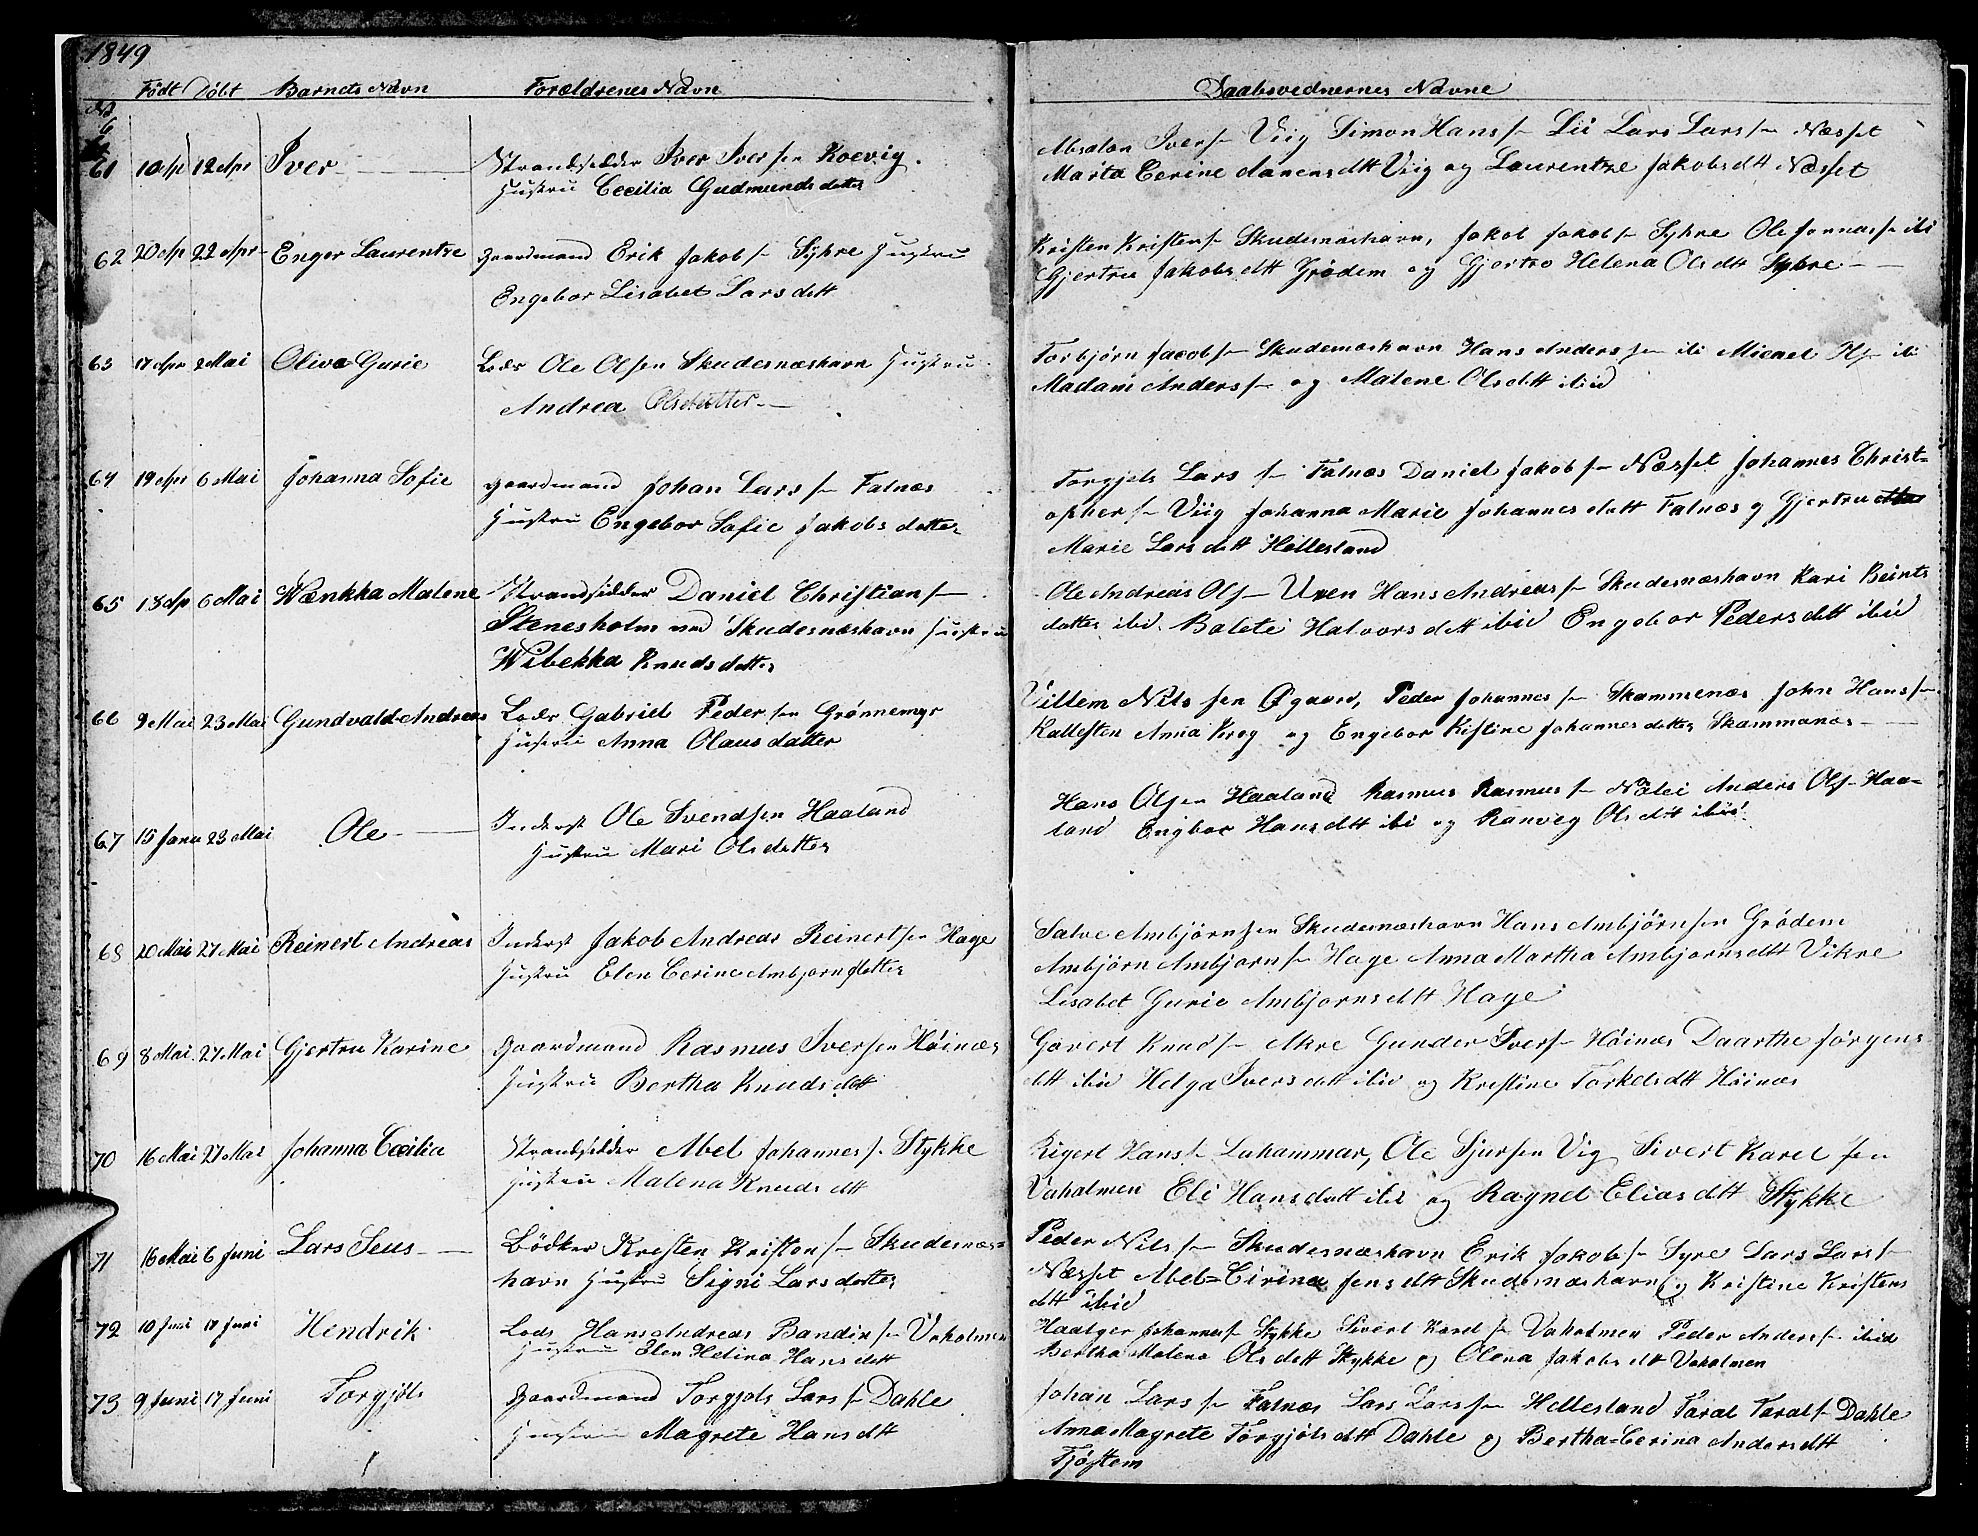 1849
No Født Døbt Barnets Navn Forældrenes Navn Daabsvidnernes Navne
61 10 Ap 12 Apr Iver Strandsidder Iver Iversen Koevig.
Hustru Cecilia Gudmundsdatter
Absalon Ivers- Viig Simon Hanss- Lii Lars Larss- Næsset
Marta Cerine Aanensdtt Viig og Laurentze Jakobsdtt Næsset
62 20 Ap 22 Apr Enger Laurentze Gaardmand Erik Jakobs- Syhre Hustru
Engebor Lisabet Larsdatt
Kristen Kristens- Skudesnæshavn, Jakob Jakobs- Syhre Ole Jonnass- ibi
Gjertru Jakobsdtt Grødem og Gjertro Helena Olsdtt Syhre
63 17 Apr 2 Mai Oliva Gurie Lods Ole Olsen Skudesnæshavn Hustru
Andrea Olsdatter
Torbjørn Jacobs- Skudesnæshavn Hans Anderssen ibi Micael Ols- ibi
Madam Anderss- og Malene Olsdtt ibid
64 19 Apr 6 Mai Johanna Sofie Gaardmand Johan Larss- Falnæs
Hustru Engebor Sofie Jakobsdatter
Torgjels Larss- Falnæs Daniel Jakobs- Næsset Johannes Christ=
ophers- Viig Johanna Marie Johannesdatt Falnæs og Gjertru
Marie Larsdatt Hellesland
65 13 Ap 6 Mai Wænkka Malene Strandsidder Daniel Christians-
Stenesholm ved Skudesnæshavn Hustru
Wibekka Knudsdatter
Ole Andreas Ols- Uren Hans Andreas- Skudesnæshavn Kari Beints
datter ibid. Balete Halvorsdtt ibid Engebor Pedersdtt ibid
66 9 Mai 23 Mai Gundvald Andreas Lods Gabriel Pedersen Grønnemyr
Hustru Anna Olausdatter
Villem Nilssen Øgaard, Peder Johanness- Skammenæs John Hanss-
Kallesten Anna Krog og Engebor Kistine Johannesdatter Skammanæs
67 15 Janu 23 Mai Ole Inderst Ole Svendsen Haaland
Hustru Mari Olsdatter
Hans Olsen Haaland Rasmus Rasmuss- Nølei Anders Ols- Haa=
land Engbor Hansdtt ibi og Ranveg Olsdtt ibid
68 20 Mai 27 Mai Reinert Andreas Inderst Jakob Andreas Reinertsen Hage
Hustru Elen Cerine Ambjornsdatter
Salve Ambjørnsen Skudesnæshavn Hans Ambjørnsen Grødem
Ambjørn Ambjorns- Hage Anna Martha Ambjornsdtt Vikre
Lisabet Gurie Ambjornsdtt Hage
69 8 Mai 27 Mai Gjertru Karine Gaardmand Rasmus Iversen Høinæs
Hustru Bertha Knudsdtt
Govert Knuds- Akre Gunder Ivers- Høinæs Daarthe Jørgens
dtt ibid Helga Iversdtt ibid og Kristine Torkelsdtt Høinæs
70 16 Mai 27 Mai Johanna Cecilia Strandsidder Abel Johanness- Stykke
Hustru Malena Knudsdtt
Rigert Hanss- Luhammar, Ole Sjursen Vig Sivert Karelsen
Vaholmen Eli Hansdatt ibi og Ragnel Eliasdtt Stykke
71 16 Mai 6 Juni Lars Seus Bødker Kristen Kristens- Skudesnæs=
havn Hustru Signi Larsdatter
Peder Nilss- Skudesnæshavn Erik Jakobs- Syre Lars Larss-
Næsset Abel=Cirina Jensdtt Skudesnæshavn og Kristine Kristens
dtt ibid
72 10 Juni 17 Juni Hendrik Lods Hans Andreas Bandins- Vaholmen
Hustru Elen Helina Hansdatt
Haalger Johanness- Stykke Sivert Karels- Vaholmen Peder Anderss- ibid
Bertha Malena Olsdatt Stykke og Olena Jakobsdtt Vaholmen
73 9 Juni 17 Juni Torgjøls Gaardmand Torgjøls Larss- Dahle
Hustru Magrete Hansdtt
Johan Larss- Falnæs Lars Larssen Hellesland Taral Tarals- Dahle
Anna Magrete Torgjølsdtt Dahle og Bertha=Cerina Andersdtt
Tjøstem